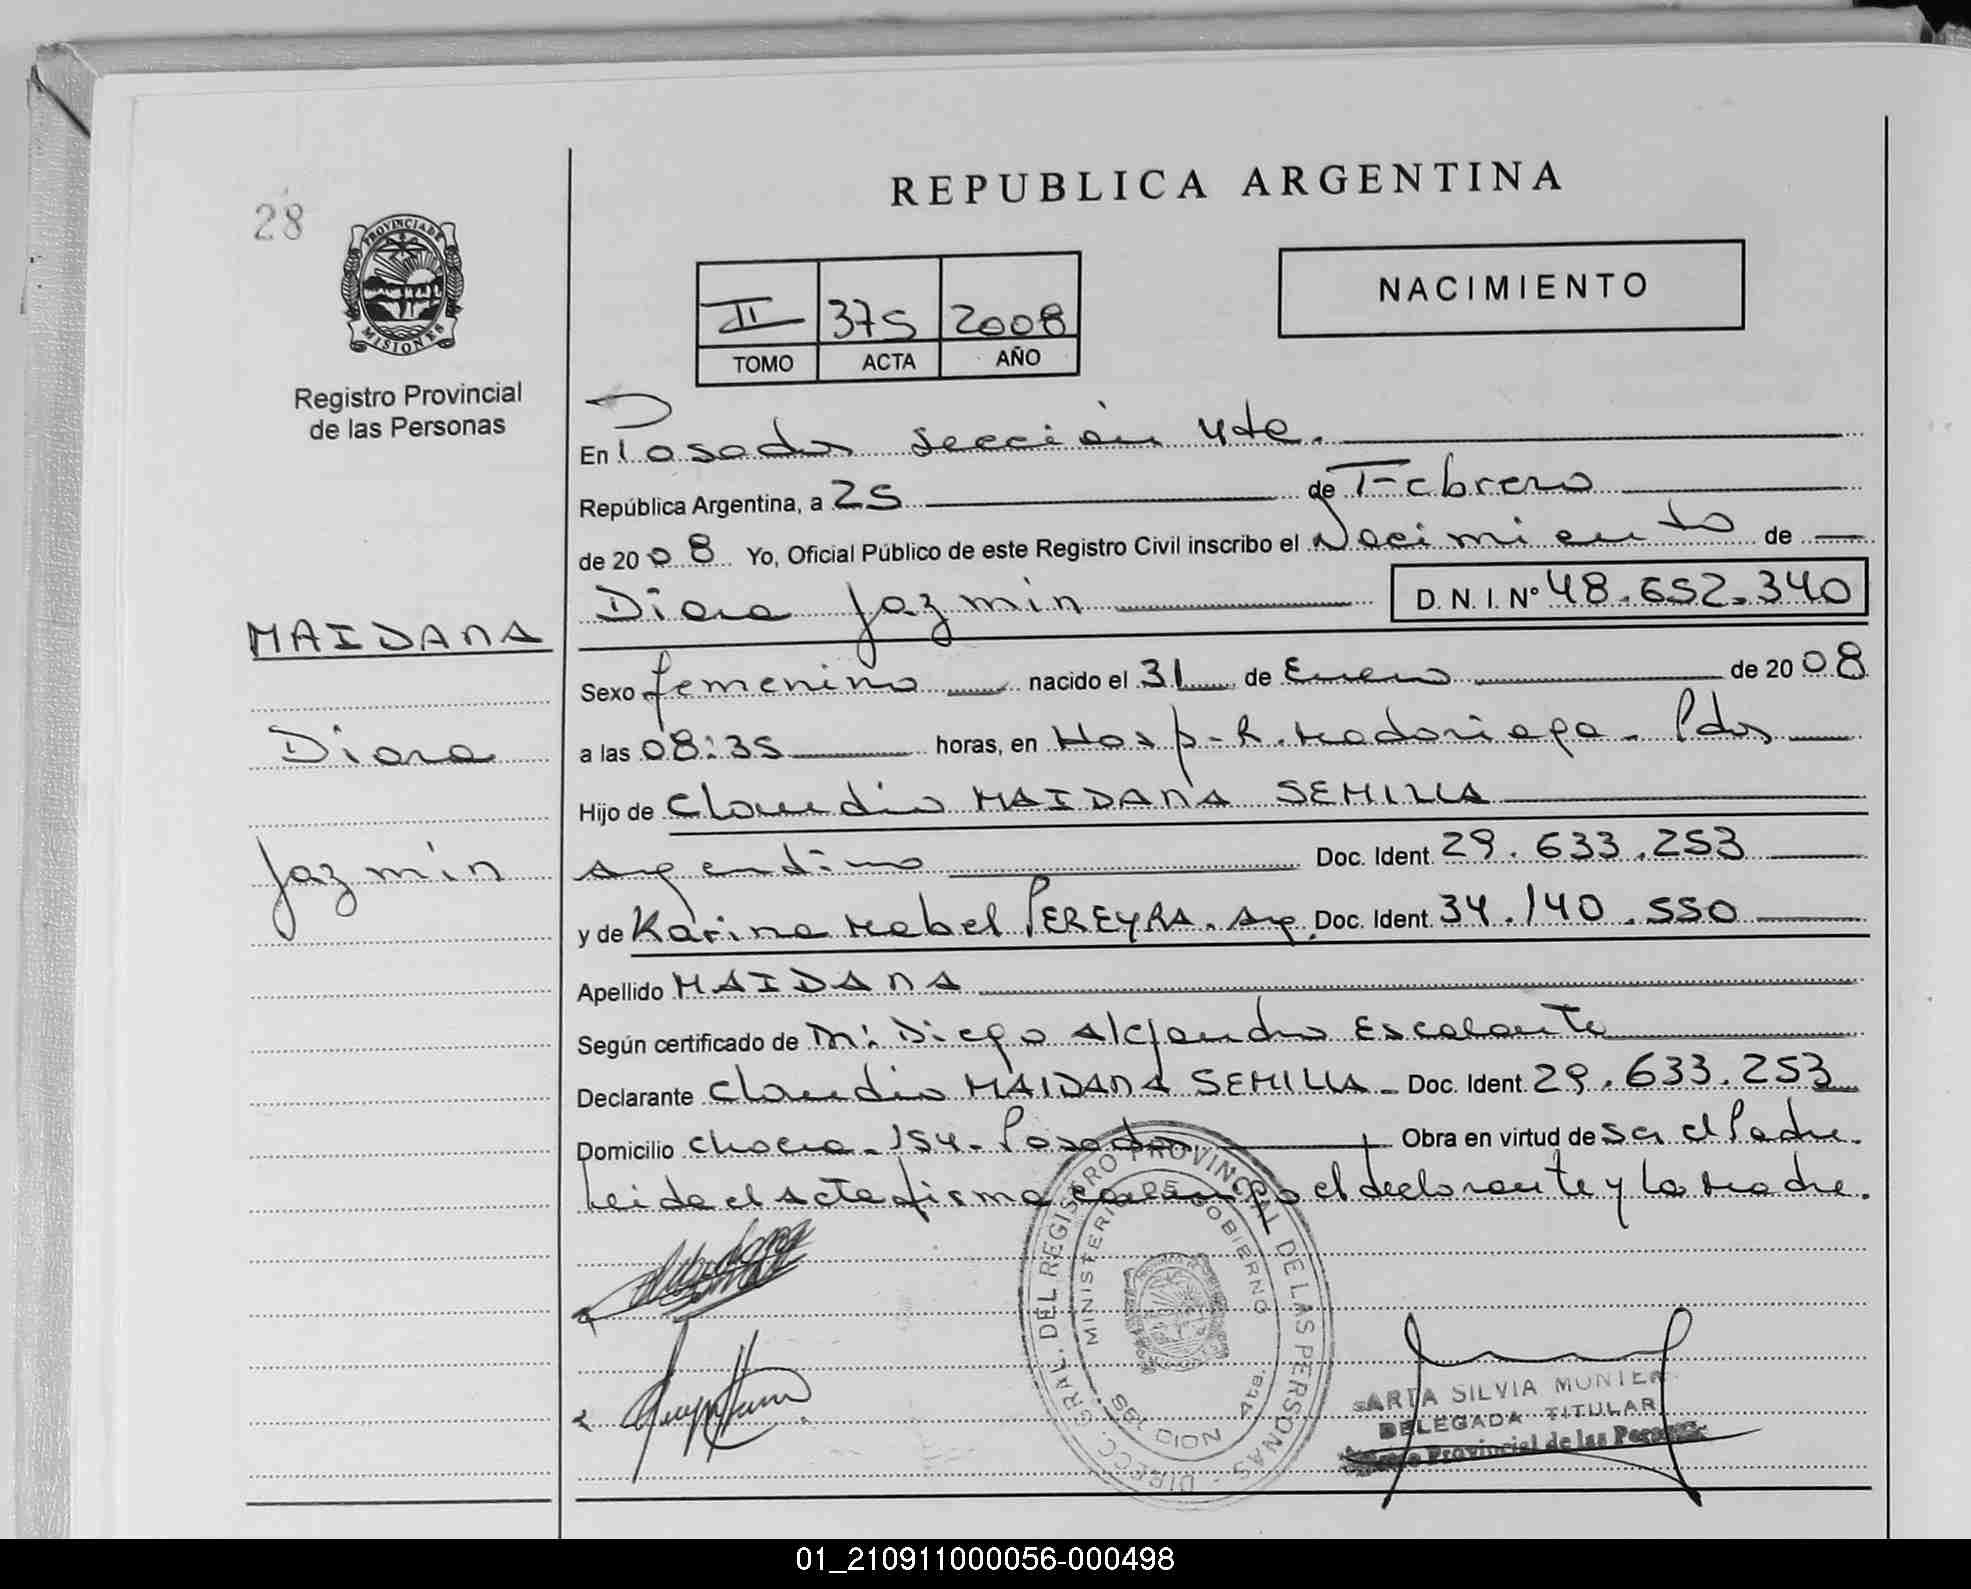 28
PROVINCIA DE
MISIONES
Registro Provincial
de las Personas
REPUBLICA ARGENTINA
NACIMIENTO
II 375 2008
TOMO ACTA AÑO
En Posadas Sección 4ta.
República Argentina, a 25 de Febrero
de 2008 Yo, Oficial Público de este Registro Civil inscribo el Nacimiento de
Diana Jazmin D. N. I. Nº 48.652.340
MAIDANA
Diana
Jazmin
Sexo femenino nacido el 31 de Enero de 2008
a las 08:35 horas, en Hosp. R. Madariaga - Pdas
Hijo de Claudio MAIDANA SEMILLA
argentino Doc. Ident. 29.633.253
y de Karina Mabel PEREYRA. Arg. Doc. Ident. 34.140.550
Apellido MAIDANA
Según certificado de M: Diego Alejandro Escalante
Declarante Claudio MAIDANA SEMILLA - Doc. Ident. 29.633.253
Domicilio 154 - Posadas Obra en virtud de ser el Padre.
Leida el acta firma conmigo el declarante y la Madre.
DIRECC. GRAL. DEL REGISTRO PROVINCIAL DE LAS PERSONAS
MINISTERIO DE GOBIERNO
ARTA SILVIA MUNIER
DELEGADA TITULAR
Provincial de las
01_210911000056-000498